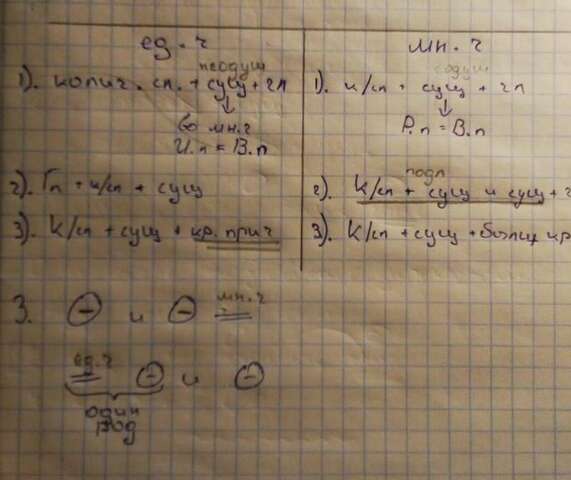 ед. ч
мн. ч
неодуш
одуш
1). колич. сл. + сущ + гл
1). к/сл + сущ + гл
во мн. ч
И.п = В.п
Р.п = В.п
2). Гл + к/сл + сущ
подл
2). К/сл + сущ и сущ +
3). К/сл + сущ + кр. прич
3). К/сл + сущ + больш кр
3. и мн. ч
ед. ч и
один
род